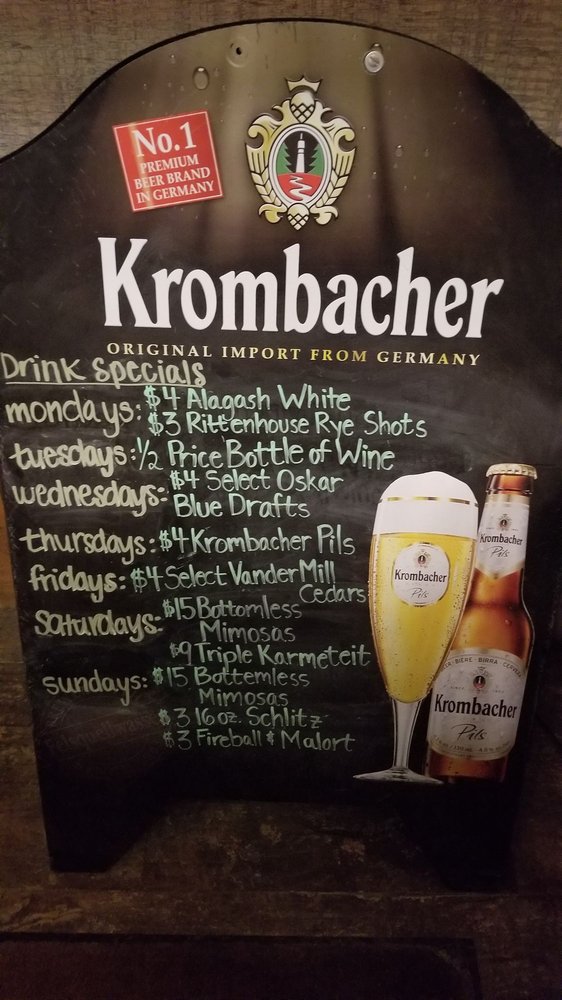 No.1
PREMIUM
BEER BRAND
IN GERMANY
Krombacher
ORIGINAL IMPORT FROM GERMANY
Drink specials
mondays: $4 Alagash White
$3 Rittenhouse Rye Shots
tuesdays: 1/2 Price Bottle of Wine
wednesdays: $4 Select Oskar
Blue Drafts
thursdays: $4 Krombacher Pils
fridays: $4 Select Vander Mill
Cedars
saturdays: $15 Bottomless
Mimosas
$9 Triple Karmeteit
sundays: $15 Bottemless
Mimosas
$3 16oz. Schlitz
$3 Fireball & Malort
Krombacher
Pils
Krombacher
Pils
BIÈRE · BIRRA
Krombacher
Pils